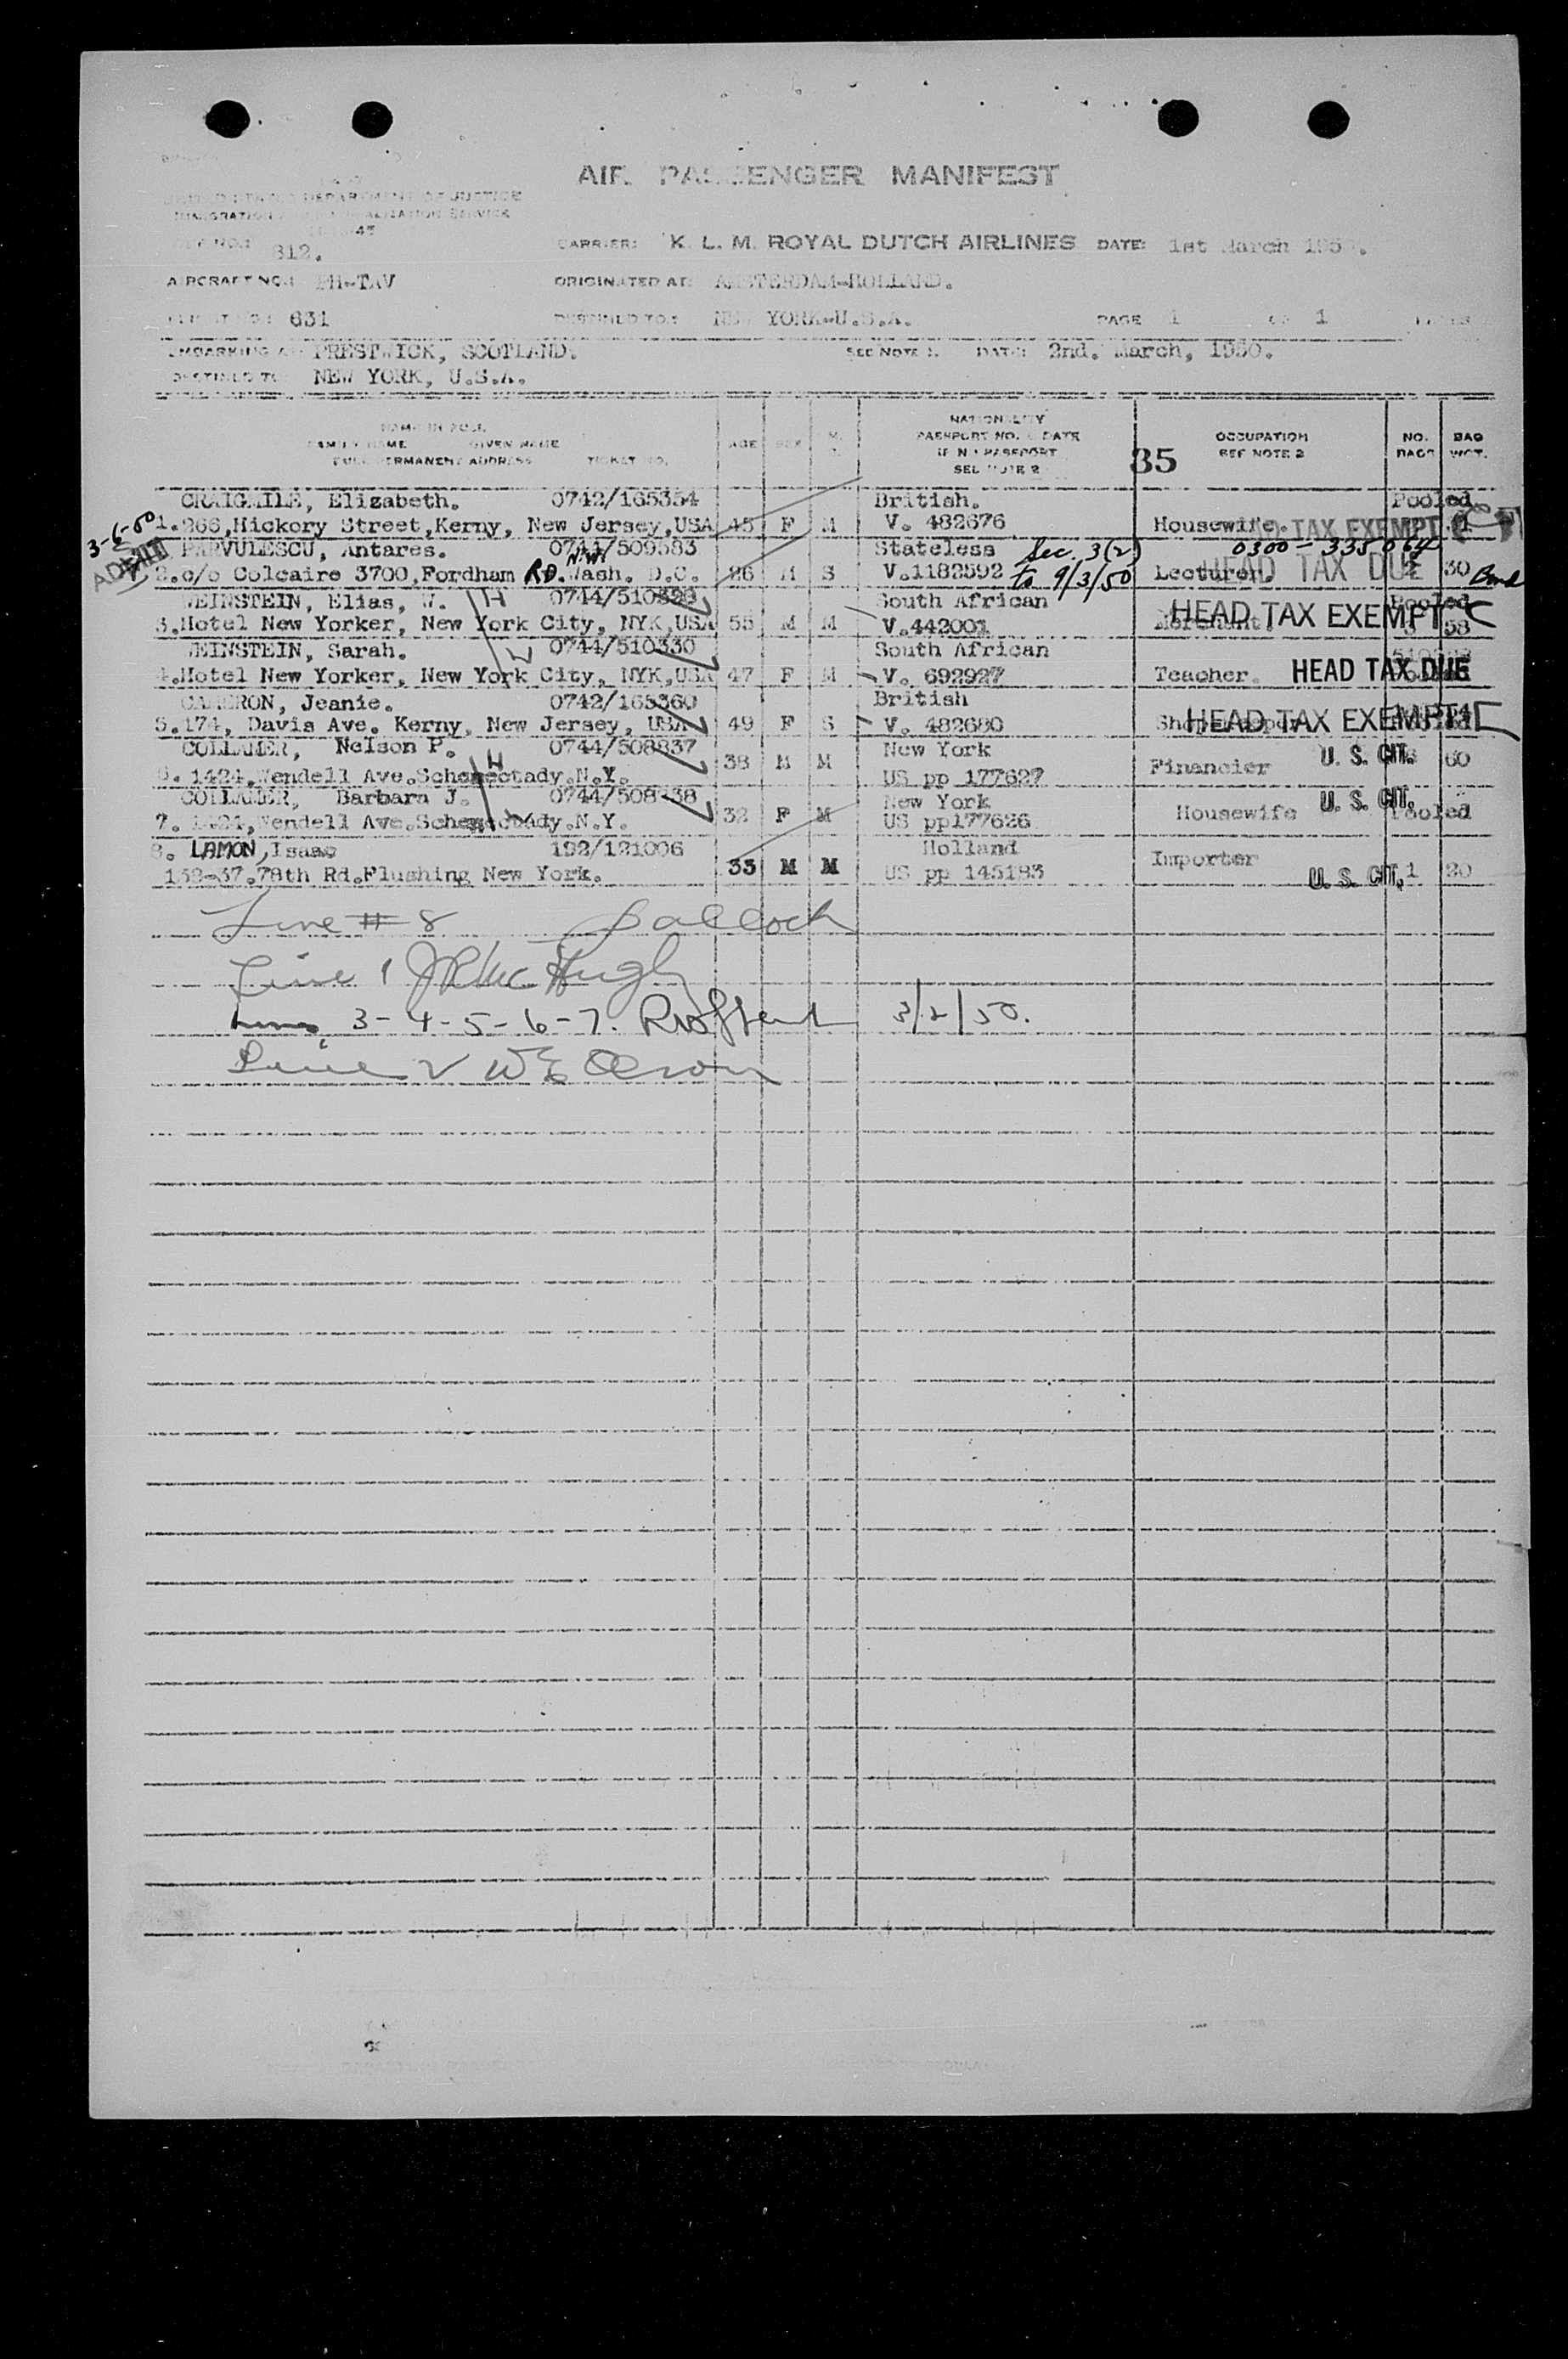 AIR PASSENGER MANIFEST
UNITED STATES DEPARTMENT OF JUSTICE
IMMIGRATION NATURALIZATION SERVICE
312.
CARRIER: K. L. M. ROYAL DUTCH AIRLINES DATE: 1st March 1950.
AIRCRAFT NO.: PH-TAV ORIGINATED AT: AMSTERDAM-HOLLAND.
FLIGHT NO.: 631 DESTINED TO: NEW YORK-U.S.A. PAGE 1 OF 1
EMBARKING AT PRESTWICK, SCOTLAND. SEE NOTE 1. DATE: 2nd. March, 1950.
DESTINED TO NEW YORK, U.S.A.
NAME IN FULL
FAMILY NAME GIVEN NAME
FULL PERMANENT ADDRESS TICKET NO.
AGE SEX M.
NATIONALITY
PASSPORT NO. & DATE
IF NO PASSPORT
SEE NOTE 2
35
OCCUPATION
SEE NOTE 2
NO. BAGS
BAG WGT.
Elizabeth. 0742/165354 British. Pooled
1. 266, Hickory Street, Kerny, New Jersey, USA 45 F M V. 482676 Housewife. TAX EXEMPT
3-6-50
PARVULESCU, Antares. 0744/509583 Stateless Sec. 3(2) 0300-335064
ADMIT
N.W.
2. c/o Colcaire 3700, Fordham RD. Wash. D.C. 26 M S V.1182592 to 9/3/50 Lecturer. HEAD TAX DUE 30 Bond
WEINSTEIN, Elias, W. H 0744/510329 South African Pooled
3. Hotel New Yorker, New York City, NYK, USA 55 M M V.442001 HEAD TAX EXEMPT 58
WEINSTEIN, Sarah. 0744/510330 South African
4. Hotel New Yorker, New York City, NYK, USA 47 F M V. 692927 Teacher. HEAD TAX DUE
CAMERON, Jeanie. 0742/165360 British
5. 174, Davis Ave. Kerny, New Jersey, USA 49 F S V. 482680 HEAD TAX EXEMPT
COLLAMER, Nelson P. 0744/508837 New York U. S. CIT.
6. 1424, Wendell Ave. Schenectady. N.Y. 38 M M US pp 177627 Financier 60
COLLAMER, Barbara J. 0744/508838 New York U. S. CIT.
7. 1424, Wendell Ave. Schenectady. N.Y. 32 F M US pp177626 Housewife Pooled
8. LAMON, Isaac 192/121006 Holland Importer
152-37.78th Rd. Flushing New York. 33 M M US pp 145183 U. S. CIT. 1 20
Line # 8
Line 1 JR McHugh
Lines 3-4-5-6-7. 3/2/50.
Line 2 W E Olson